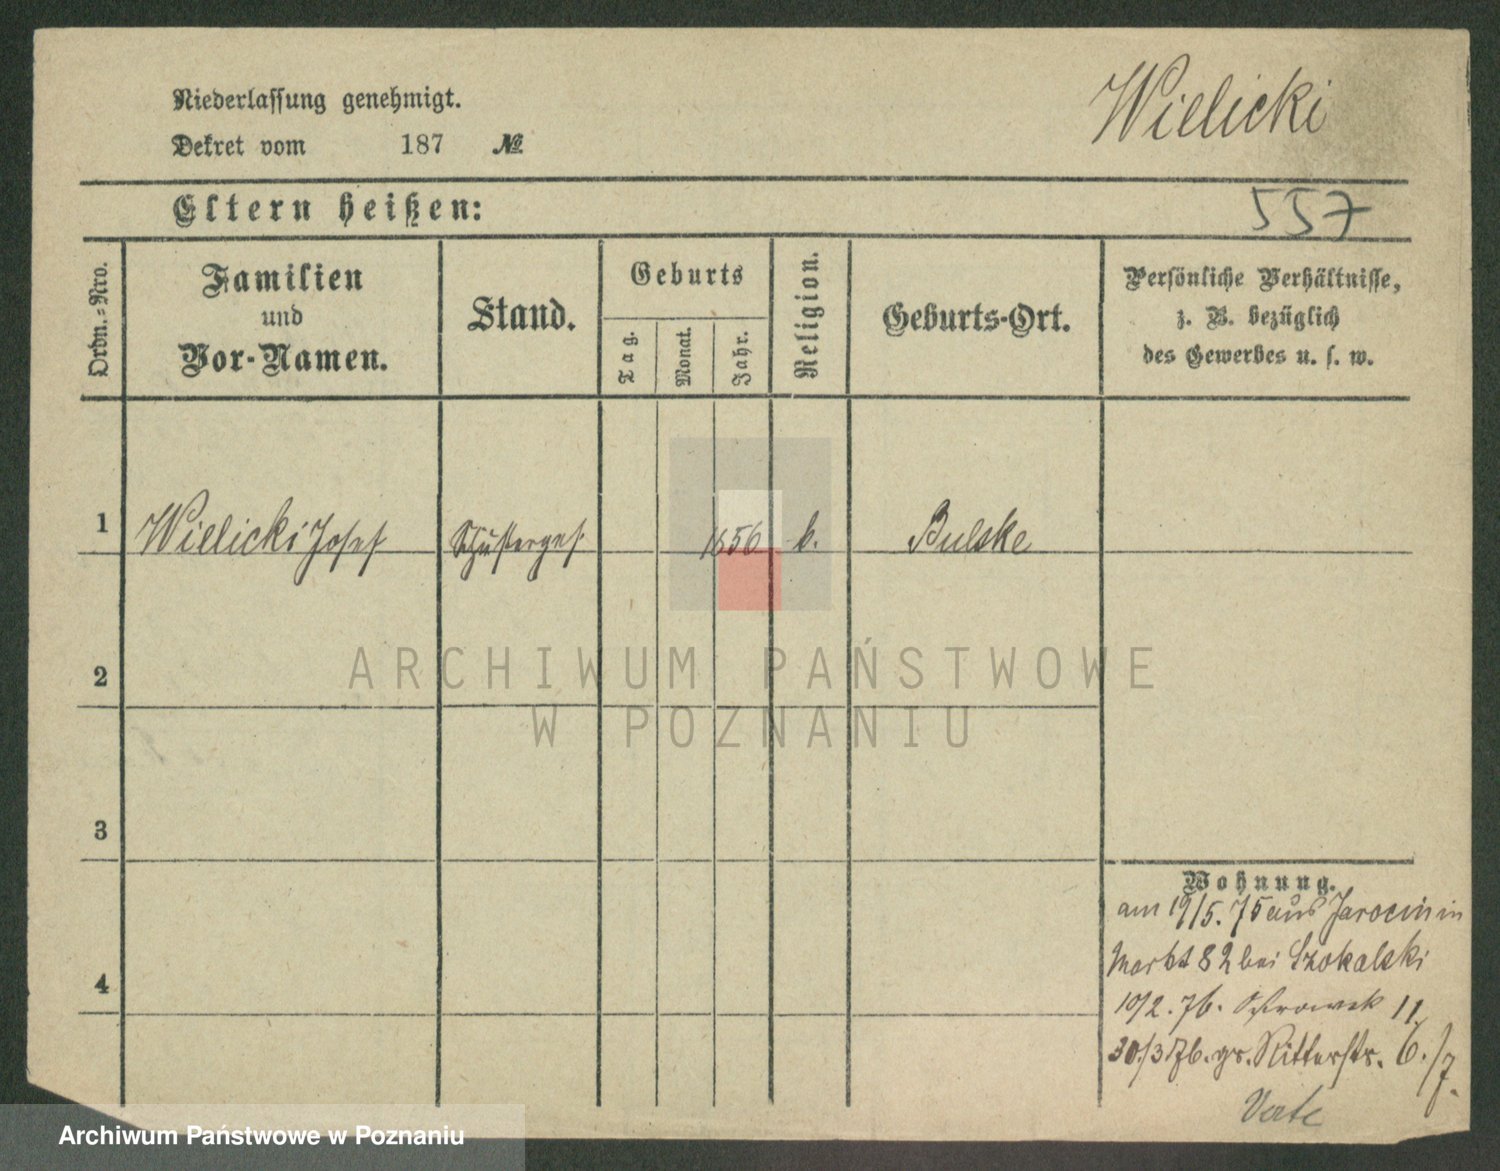 Niederlassung genehmigt.
Wielicki
Dekret vom 187 №
Eltern heißen:
557
Ordn.-Nro.
Familien
und
Vor-Namen.
Stand.
Geburts
Tag.
Monat.
Jahr.
Religion.
Geburts-Ort.
Persönliche Verhältnisse,
z. B. bezüglich
des Gewerbes u. s. w.
1 Wielicki Josef Schusterges. 1856 k. Bulske
ARCHIWUM PAŃSTWOWE
W POZNANIU
2
3
4
Wohnung.
am 19/5. 75 aus Jarocin in
Markt 82 bei Szokalski
10/2. 76. Ostrowek 11
30/3 76. gr. Ritterstr. 6./7.
Verte
Archiwum Państwowe w Poznaniu